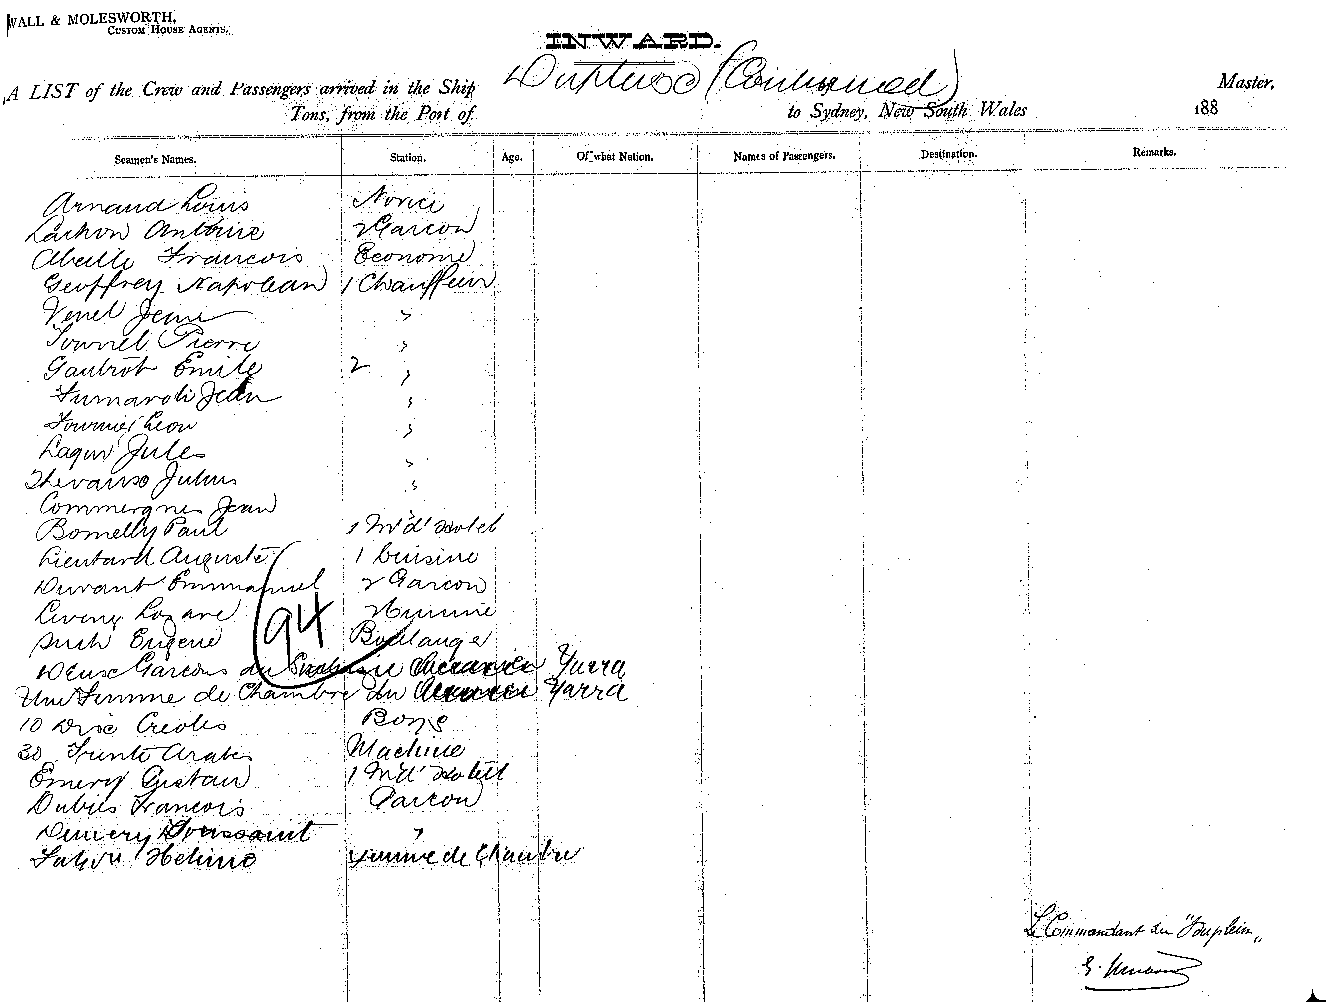 WALL & MOLESWORTH,
CUSTOM HOUSE AGENTS.
INWARD.
A LIST of the Crew and Passengers arrived in the Ship (Continued) Master,
Tons, from the Port of to Sydney, New South Wales 188
Seamen's Names. Station. Age. Of what Nation. Names of Passengers. Destination. Remarks.
Arnaud Louis Novice
Antoine 2 Garcon
Abeille Francois Econome
Geoffrey Napolean 1 Chauffeur
Venel "
Tournel Pierre "
Gautrot Emile 2 "
Fumaroli Jean "
Fournier Leon "
Jules "
Julius "
Commergnes Jean "
Bomelly Paul 1 M'd'Hotel
Lieutard Auguste 1 Cuisine
Durant Emmanuel 2 Garcon
Lazare
94
Eugene Boulanger
Deux Garcons du Yarra
Une Femme de Chambre du Yarra
10 Dix Creoles Boys
30 Trente Arabes Machine
Emery Gustan 1 M'd'Hotel
Dubies Francois Garcon
Toussaint "
Femme de Chambre
Le Commandant du "Dupleix"